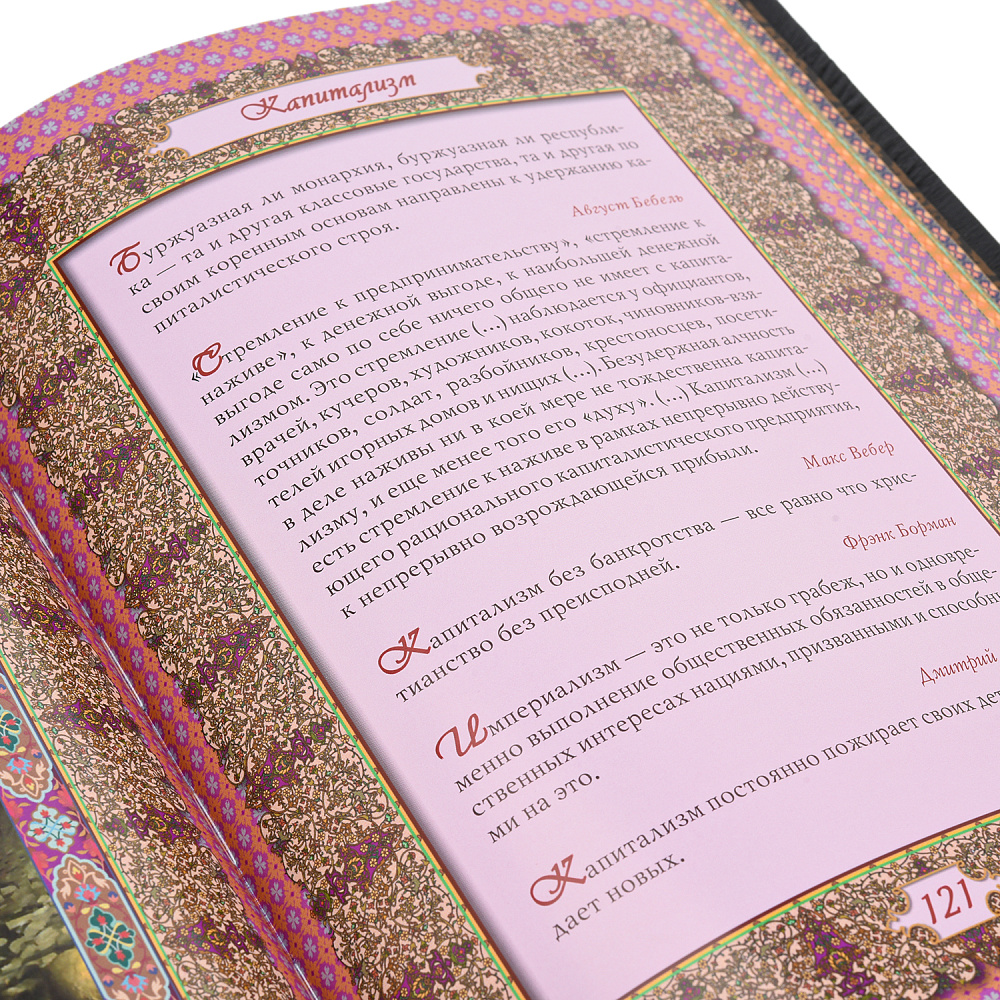 Капитализм
Буржуазная ли монархия, буржуазная ли республи-
ка — та и другая классовые государства, та и другая по
своим коренным основам направлены к удержанию ка-
питалистического строя.
Август Бебель
«Стремление к предпринимательству», «стремление к
наживе», к денежной выгоде, к наибольшей денежной
выгоде само по себе ничего общего не имеет с капита-
лизмом. Это стремление (...) наблюдается у официантов,
врачей, кучеров, художников, кокоток, чиновников-взя-
точников, солдат, разбойников, крестоносцев, посети-
телей игорных домов и нищих (...). Безудержная алчность
в деле наживы ни в коей мере не тождественна капита-
лизму, и еще менее того его «духу». (...) Капитализм (...)
есть стремление к наживе в рамках непрерывно действу-
ющего рационального капиталистического предприятия,
к непрерывно возрождающейся прибыли.
Макс Вебер
Капитализм без банкротства — все равно что хрис-
тианство без преисподней.
Фрэнк Борман
Империализм — это не только грабеж, но и одновре-
менно выполнение общественных обязанностей в обще-
ственных интересах нациями, призванными и способны-
ми на это.
Дмитрий
Капитализм постоянно пожирает своих дет
дает новых.
121